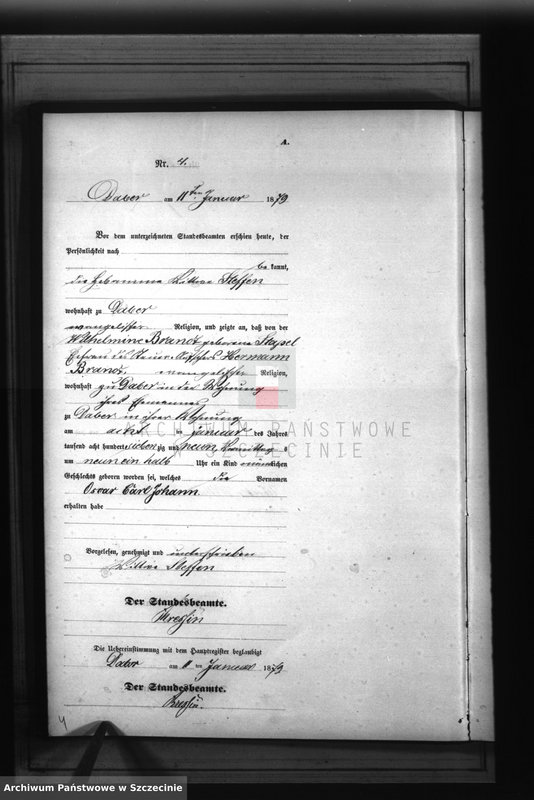 A.
Nr. 4.
Daber am 11ten Januar 1879
Vor dem unterzeichneten Standesbeamten erschien heute, der
Persönlichkeit nach
bekannt,
die Hebamme Wittwe Steffen
wohnhaft zu Daber
evangelischer Religion, und zeigte an, daß von der
Wilhelmine Brandt geborene Stapel
Ehefrau des Steuer-Aufsehers Hermann
Brandt, evangelischer Religion,
wohnhaft zu Daber in der Wohnung
ihres Ehemannes
zu Daber in ihrer Wohnung
am acht Januar des Jahres
tausend acht hundert siebenzig und neun, Vormittags
um neun ein halb Uhr ein Kind männlichen
Geschlechts geboren worden sei, welches die Vornamen
Oscar Carl Johann
erhalten habe
Vorgelesen, genehmigt und unterschrieben
Wittwe Steffen
Der Standesbeamte.
Die Uebereinstimmung mit dem Hauptregister beglaubigt
Daber am 11ten Januar 1879
Der Standesbeamte.
4
ARCHIWUM PAŃSTWOWE
W SZCZECINIE
Archiwum Państwowe w Szczecinie